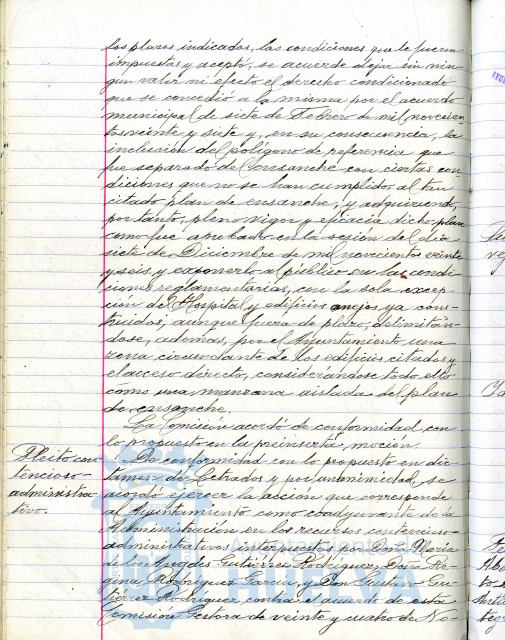 los plazos indicados, las condiciones que le fueron
impuestas y aceptó, se acuerde dejar sin nin-
gun valor ni efecto el derecho condicionado
que se concedió a la misma por el acuerdo
municipal de siete de Febrero de mil novecien-
tos veinte y siete y, en su consecuencia, la
inclusión del polígono de referencia que
fue separado del ensanche con ciertas con
diciones que no se han cumplido, al tan
citado plan de ensanche, y adquiriendo,
por tanto, pleno vigor y eficacia dicho plan
como fue aprobado en la sesión del día
siete de Diciembre de mil novecientos veinte
y seis y exponerlo al público en las condi-
ciones reglamentarias, con la sola excep-
ción del Hospital y edificios anejos ya cons-
truidos, aunque fuera de plazo, delimitán-
dose, además, por el Ayuntamiento una
zona circundante de los edificios citados y
el acceso directo, considerándose todo ello
como una manzana aislada del plan
de ensanche.
La Comisión acordó de conformidad con
lo propuesto en la preinserta moción.
Pleito con
tencioso-
administra-
tivo.
De conformidad con lo propuesto en dic-
tamen de Letrados y por unanimidad, se
acordó ejercer la acción que corresponde
al Ayuntamiento como coadyuvante de la
Administración en los recursos contencioso-
administrativos interpuestos por Doña Maria
de los Angeles Gutiérrez Rodriguez, Doña Re-
gina Rodriguez Garcia, y Don Gustavo Gu-
tiérrez Rodriguez, contra el acuerdo de esta
Comisión Gestora de veinte y cuatro de No-
HUELVA